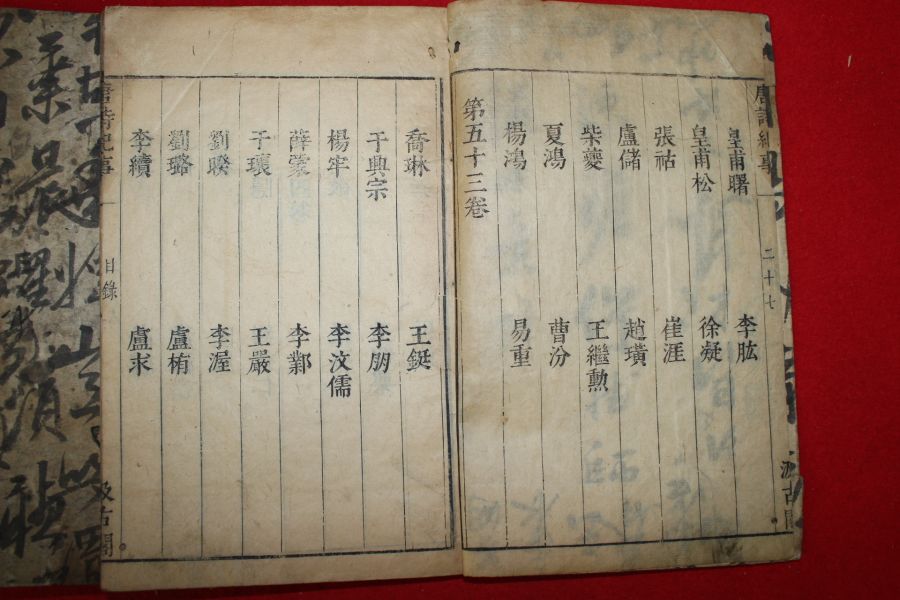 唐詩紀事 二十七 汲古閣
皇甫曙 李肱
皇甫松 徐凝
張祜 崔涯
盧儲 趙璜
柴夔 王繼勲
夏鴻 曹汾
楊鴻 易重
第五十三卷
喬琳 王鋋
于興宗 李朋
楊牢 李汶儒
薛蒙 李鄴
于瓌 王嚴
劉暌 李渥
劉璐 盧栯
李續 盧求
唐詩紀事 目錄 汲古閣